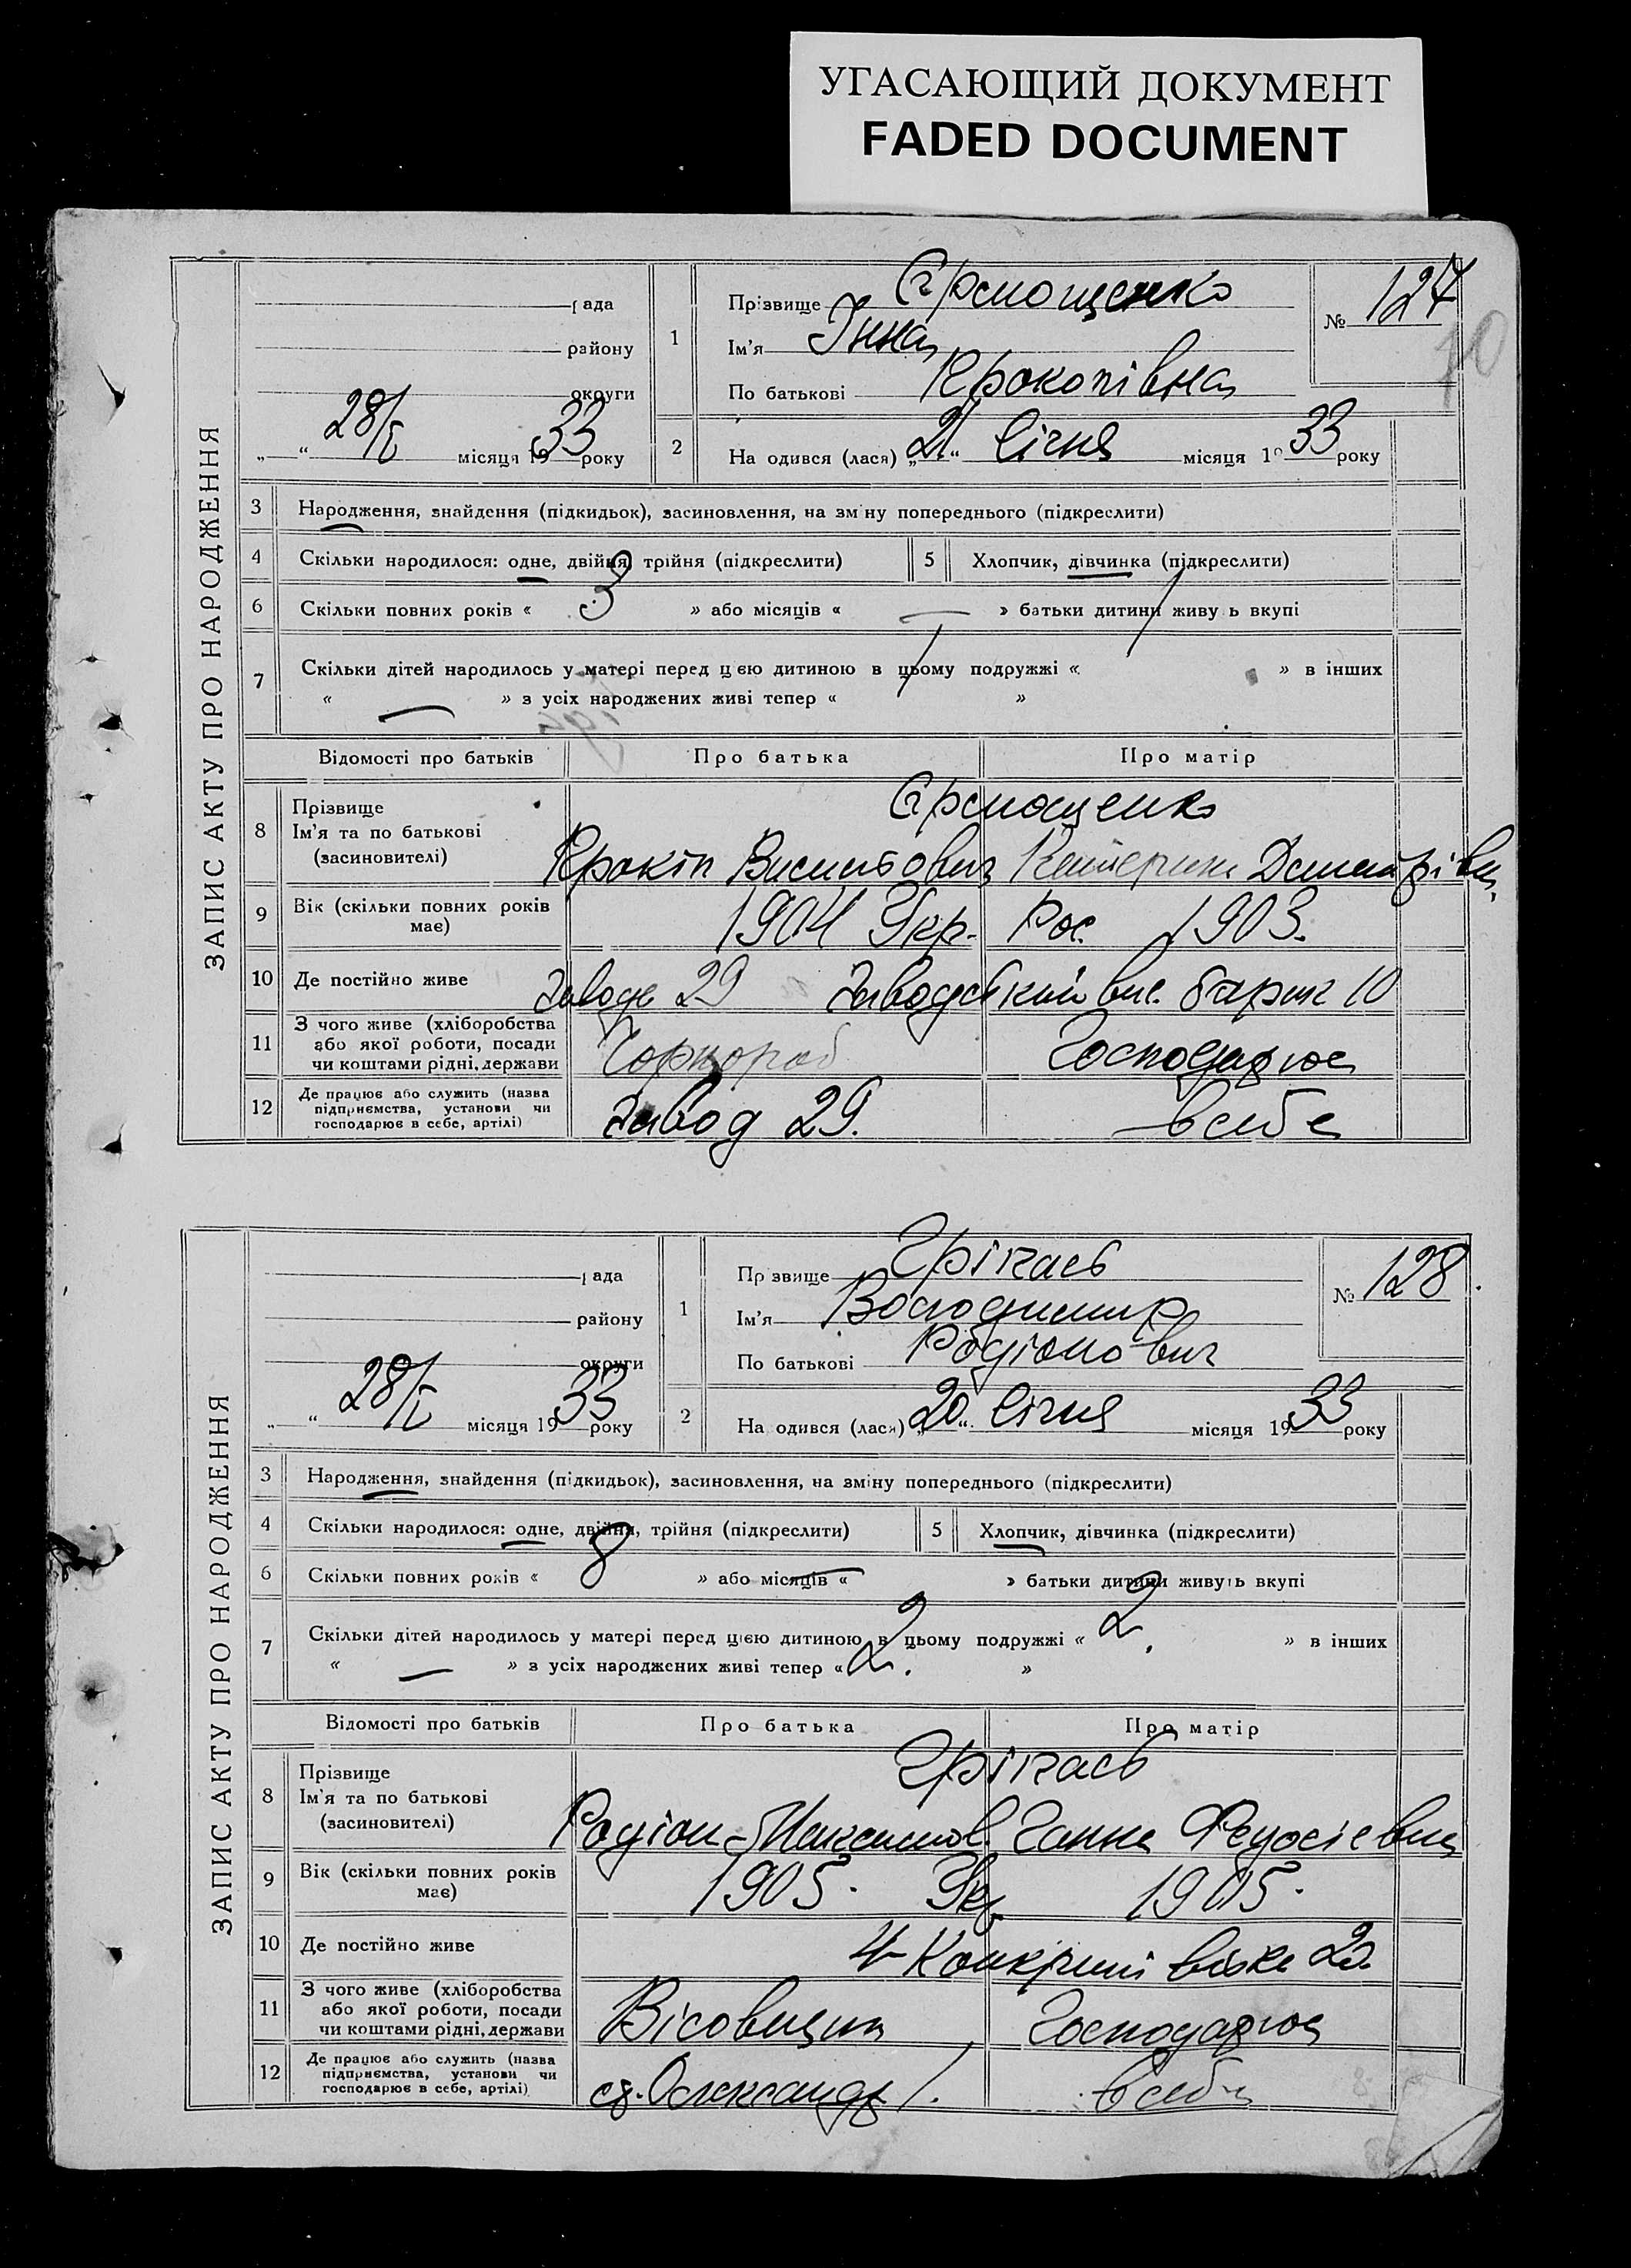 УГАСАЮЩИЙ ДОКУМЕНТ
FADED DOCUMENT
ЗАПИС АКТУ ПРО НАРОДЖЕННЯ
рада
району
округи
„ “ 28/I місяця 1933 року
1
Прізвище Єрмощенко
Ім'я Інна
По батькові Прокопівна
№ 127
10
2
На одився (лася) „21“ Січня місяця 1933 року
3 Народження, знайдення (підкидьок), засиновлення, на зміну попереднього (підкреслити)
4 Скільки народилося: одне, двійня, трійня (підкреслити) 5 Хлопчик, дівчинка (підкреслити)
6 Скільки повних років « 3 » або місяців « — » батьки дитини живуть вкупі
7 Скільки дітей народилось у матері перед цією дитиною в цьому подружжі « » в інших
« — » з усіх народжених живі тепер « »
Відомості про батьків Про батька Про матір
8 Прізвище
Ім'я та по батькові
(засиновителі)
Єрмощенко
Прокіп Катерина
9 Вік (скільки повних років
має)
1904 Укр. Рос. 1903.
10 Де постійно живе
Завод 29 барак 10
11 З чого живе (хліборобства
або якої роботи, посади
чи коштами рідні, держави
Чорнороб Господарює
12 Де працює або служить (назва
підприємства, установи чи
господарює в себе, артілі)
Завод 29. в себе
ЗАПИС АКТУ ПРО НАРОДЖЕННЯ
рада
району
округи
„ “ 28/I місяця 1933 року
1
Прізвище
Ім'я Володимир
По батькові Родіонович
№ 128.
2
На одився (лася) „20“ Січня місяця 1933 року
3 Народження, знайдення (підкидьок), засиновлення, на зміну попереднього (підкреслити)
4 Скільки народилося: одне, двійня, трійня (підкреслити) 5 Хлопчик, дівчинка (підкреслити)
6 Скільки повних років « 8 » або місяців « — » батьки дитини живуть вкупі
7 Скільки дітей народилось у матері перед цією дитиною в цьому подружжі « 2. » в інших
« — » з усіх народжених живі тепер « 2. »
Відомості про батьків Про батька Про матір
8 Прізвище
Ім'я та по батькові
(засиновителі)
Родіон Максимов. Ганна Федосієвна
9 Вік (скільки повних років
має)
1905. Укр 1905.
10 Де постійно живе
11 З чого живе (хліборобства
або якої роботи, посади
чи коштами рідні, держави
Вісовщик Господарює
12 Де працює або служить (назва
підприємства, установи чи
господарює в себе, артілі)
ст. Олександр /. в себе